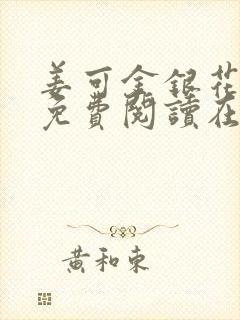 姜可金銀花
免費閱讀在
黃和東